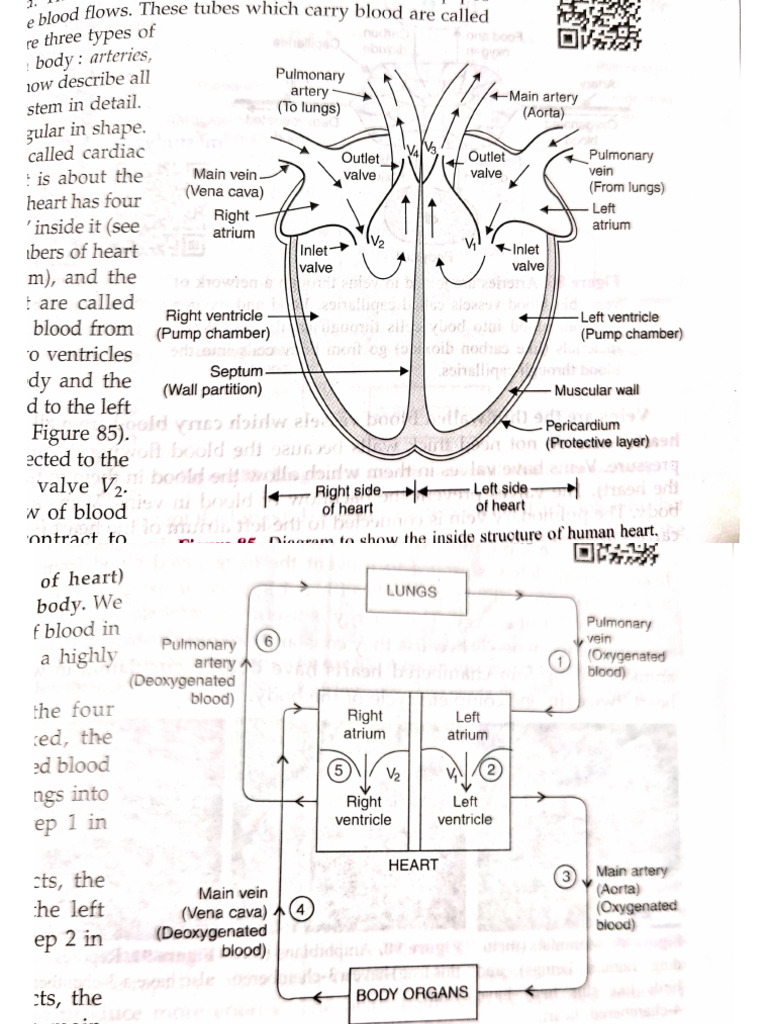 e blood flows. These tubes which carry blood are called
re three types of
body : arteries,
now describe all
stem in detail.
gular in shape.
called cardiac
is about the
heart has four
inside it (see
bers of heart
m), and the
are called
blood from
o ventricles
dy and the
d to the left
Figure 85).
ected to the
valve V2.
w of blood
contract to
Pulmonary
artery
(To lungs)
Main artery
(Aorta)
V4
V3
Outlet
valve
Outlet
valve
Main vein
(Vena cava)
Pulmonary
vein
(From lungs)
Right
atrium
Left
atrium
V2
V1
Inlet
valve
Inlet
valve
Right ventricle
(Pump chamber)
Left ventricle
(Pump chamber)
Septum
(Wall partition)
Muscular wall
Pericardium
(Protective layer)
Right side
of heart
Left side
of heart
Figure 85. Diagram to show the inside structure of human heart.
of heart)
body. We
f blood in
a highly
the four
ed, the
ed blood
ngs into
ep 1 in
cts, the
he left
ep 2 in
cts, the
LUNGS
Pulmonary
artery
(Deoxygenated
blood)
6
Pulmonary
vein
(Oxygenated
blood)
1
Right
atrium
Left
atrium
5
V2
V1
2
Right
ventricle
Left
ventricle
HEART
Main vein
(Vena cava)
(Deoxygenated
blood)
4
3
Main artery
(Aorta)
(Oxygenated
blood)
BODY ORGANS